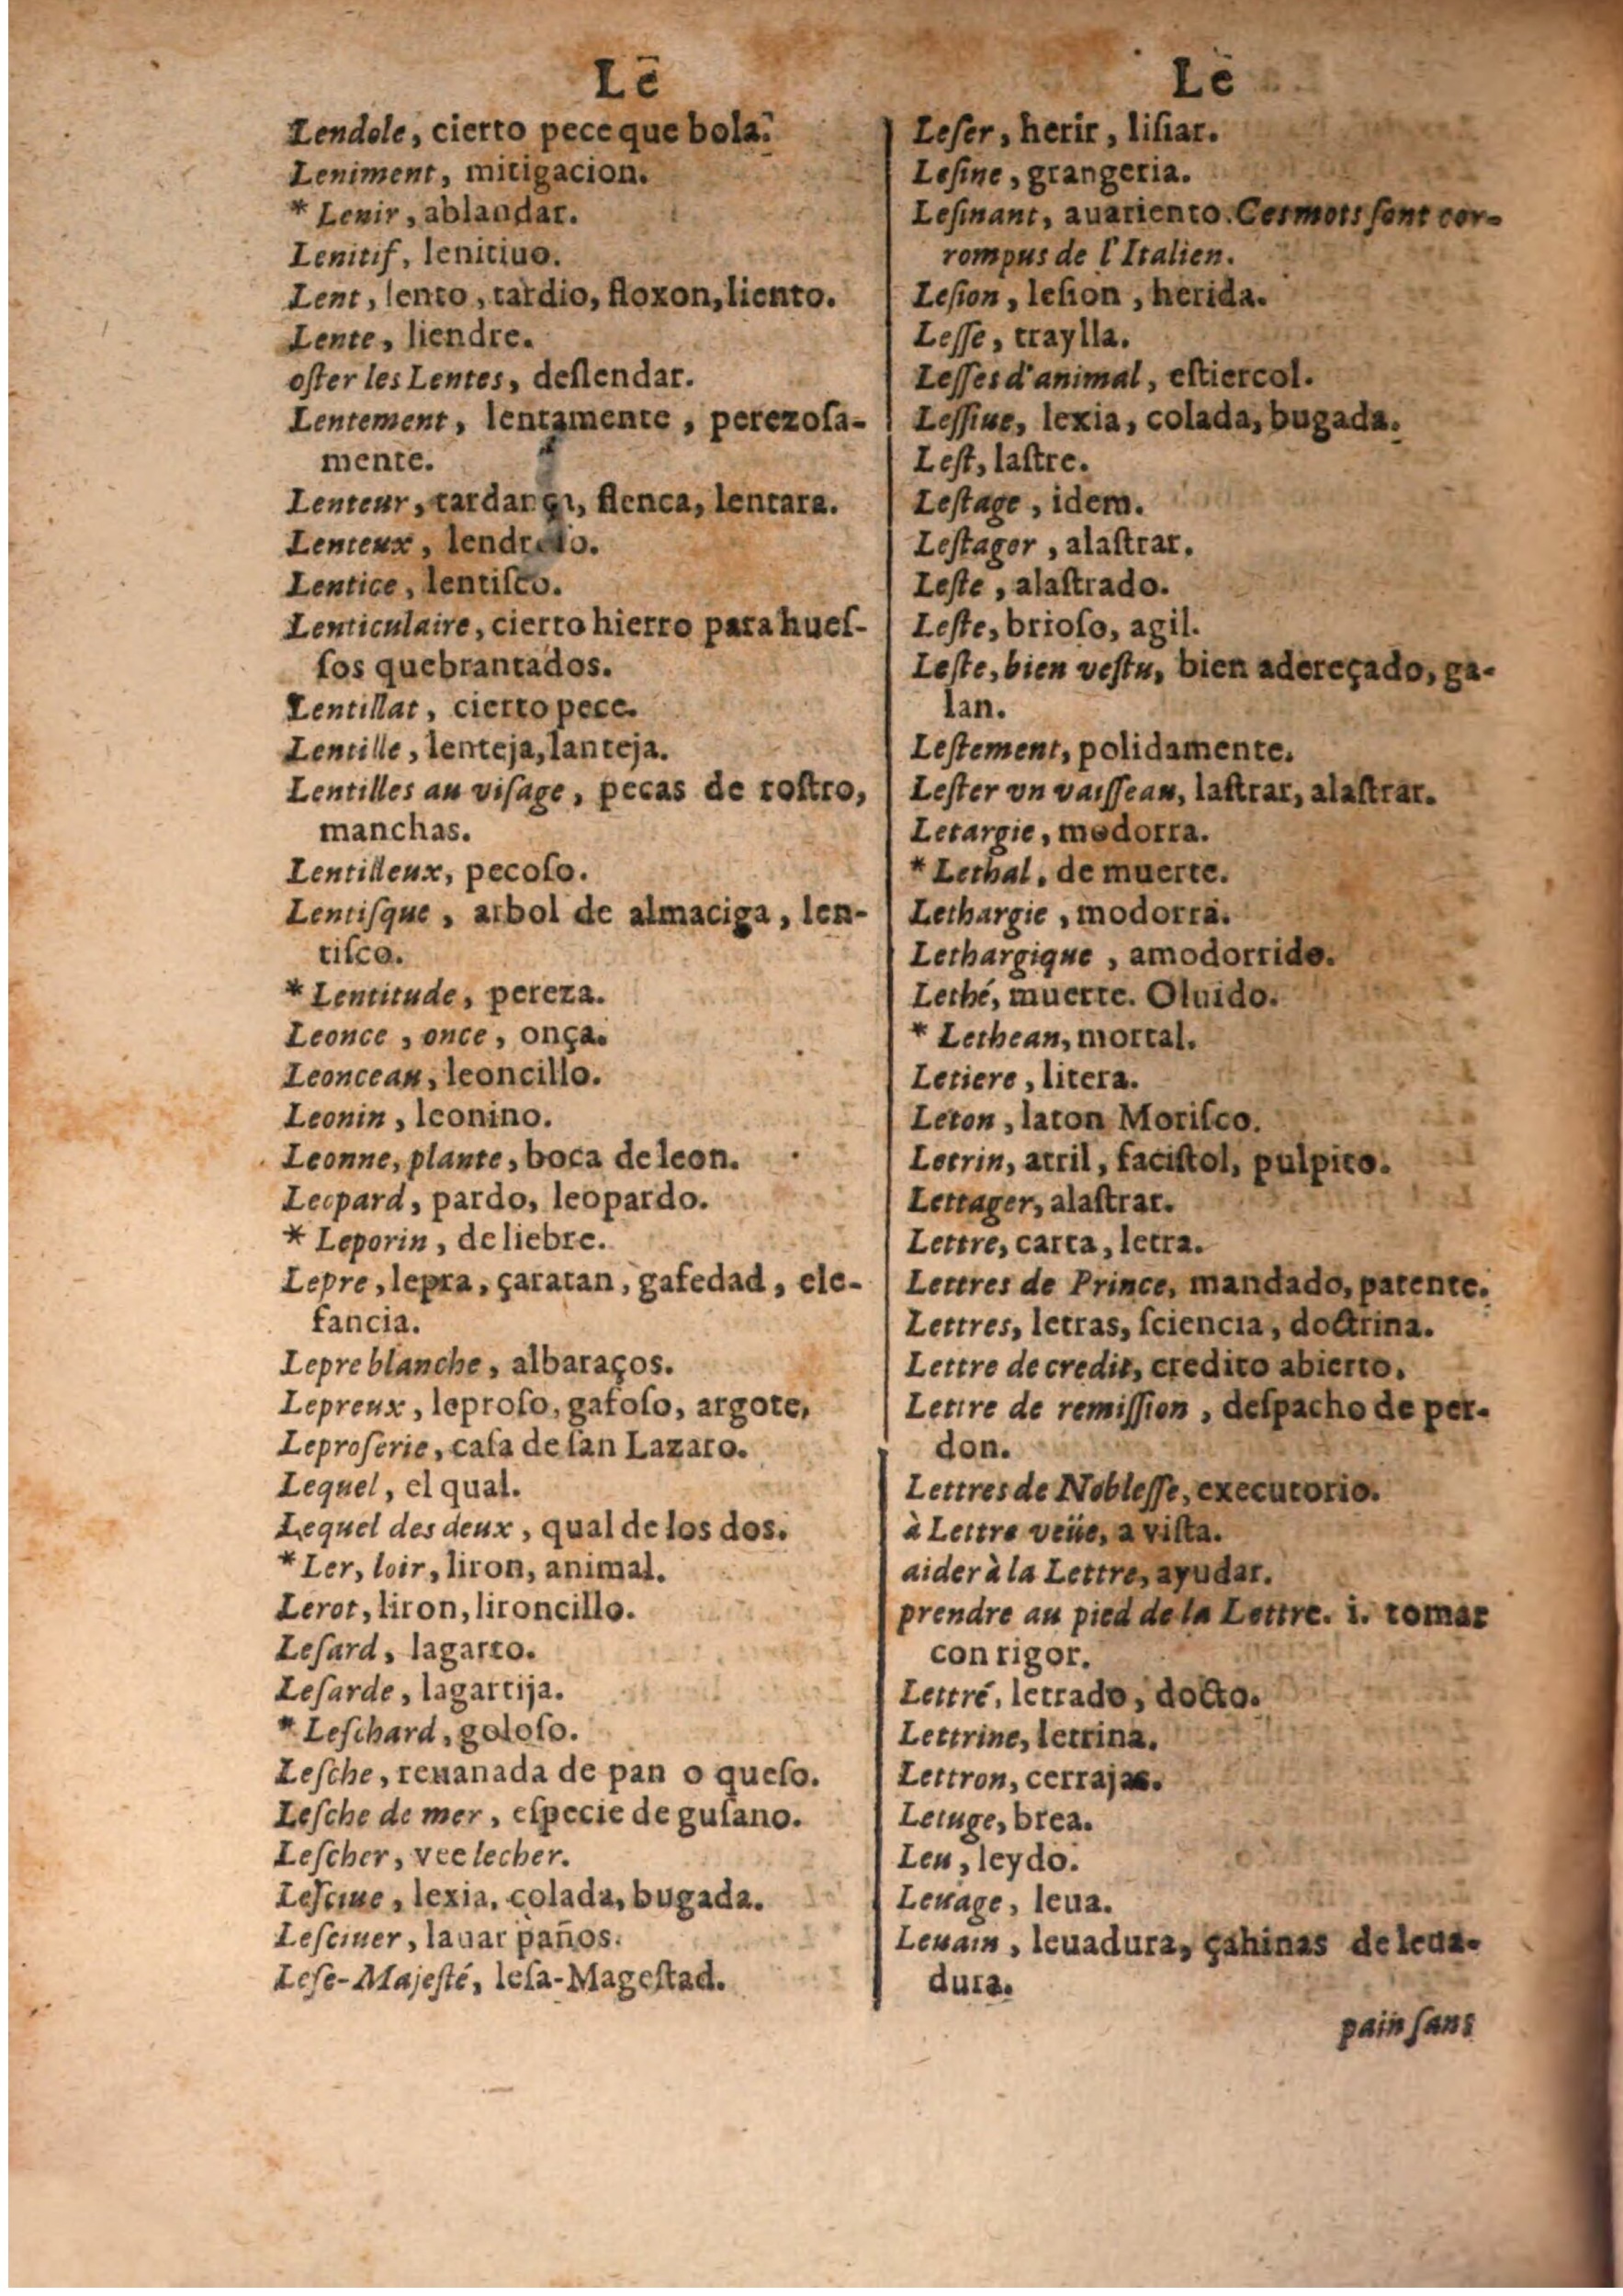 Lē
Lendole, cierto pece que bola.
Leniment, mitigacion.
* Lenir, ablandar.
Lenitif, lenitiuo.
Lent, lento, tardio, floxon, liento.
Lente, liendre.
oſter les Lentes, deſlendar.
Lentement, lentamente, perezoſa-
mente.
Lenteur, flenca, lentara.
Lenteux,
Lentice, lentiſco.
Lenticulaire, cierto hierro para hueſ-
ſos quebrantados.
Lentillat, cierto pece.
Lentille, lenteja, lanteja.
Lentilles au viſage, pecas de roſtro,
manchas.
Lentilleux, pecoſo.
Lentiſque, arbol de almaciga, len-
tiſco.
* Lentitude, pereza.
Leonce, once, onça.
Leonceau, leoncillo.
Leonin, leonino.
Leonne, plante, boca de leon.
Leopard, pardo, leopardo.
* Leporin, de liebre.
Lepre, lepra, çaratan, gafedad, ele-
fancia.
Lepre blanche, albaraços.
Lepreux, leproſo, gafoſo, argote,
Leproſerie, caſa de ſan Lazaro.
Lequel, el qual.
Lequel des deux, qual de los dos.
* Ler, loir, liron, animal.
Lerot, liron, lironcillo.
Leſard, lagarto.
Leſarde, lagartija.
* Leſchard, goloſo.
Leſche, reuanada de pan o queſo.
Leſche de mer, eſpecie de guſano.
Leſcher, vee lecher.
Leſciue, lexia, colada, bugada.
Leſciuer, lauar paños.
Leſe-Majeſté, leſa-Mageſtad.
Lē
Leſer, herir, liſiar.
Leſine, grangeria.
Leſinant, auariento. Ces mots ſont cor-
rompus de l'Italien.
Leſion, leſion, herida.
Leſſe, traylla.
Leſſes d'animal, eſtiercol.
Leſſiue, lexia, colada, bugada.
Leſt, laſtre.
Leſtage, idem.
Leſtager, alaſtrar.
Leſte, alaſtrado.
Leſte, brioſo, agil.
Leſte, bien veſtu, bien adereçado, ga-
lan.
Leſtement, polidamente.
Leſter vn vaiſſeau, laſtrar, alaſtrar.
Letargie, modorra.
* Lethal, de muerte.
Lethargie, modorra.
Lethargique, amodorrido.
Lethé, muerte. Oluido.
* Lethean, mortal.
Letiere, litera.
Leton, laton Moriſco.
Letrin, atril, faciſtol, pulpito.
Lettager, alaſtrar.
Lettre, carta, letra.
Lettres de Prince, mandado, patente.
Lettres, letras, ſciencia, doctrina.
Lettre de credit, credito abierto.
Lettre de remiſſion, deſpacho de per-
don.
Lettres de Nobleſſe, executorio.
à Lettre veüe, a viſta.
aider à la Lettre, ayudar.
prendre au pied de la Lettre. i. tomar
con rigor.
Lettré, letrado, docto.
Lettrine, letrina.
Lettron, cerrajas.
Letuge, brea.
Leu, leydo.
Leuage, leua.
Leuain, leuadura, çahinas de leua-
dura.
pain ſans